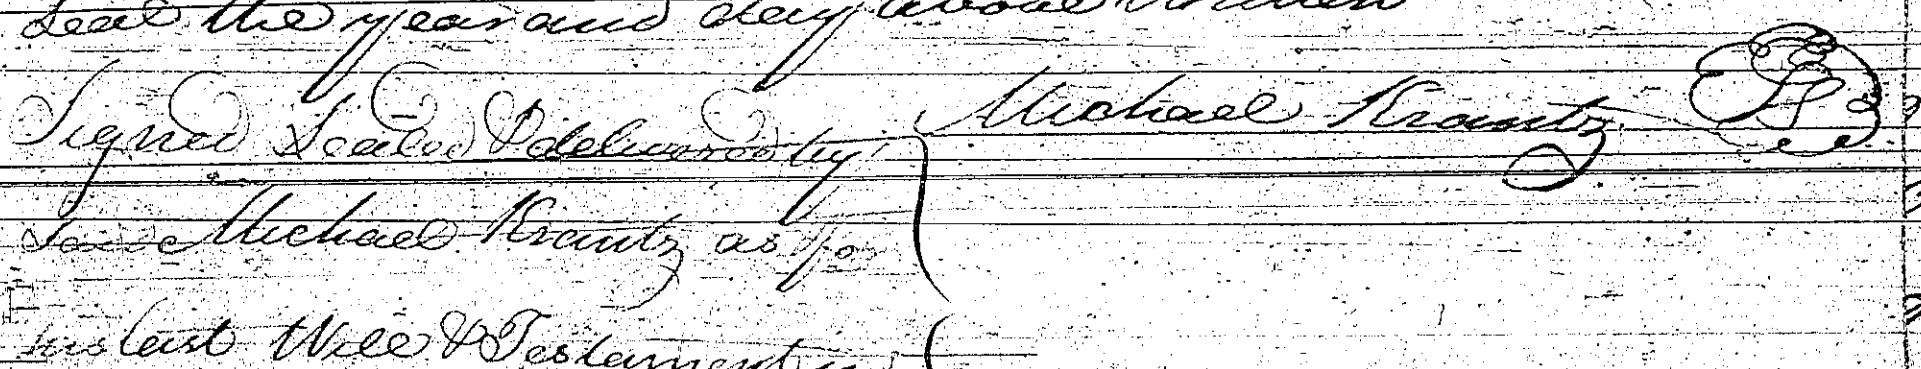 Seal the year and day above written
Signed Sealed & delivered by Michael Krantz
Said Michael Krantz as & for
his last Will & Testament